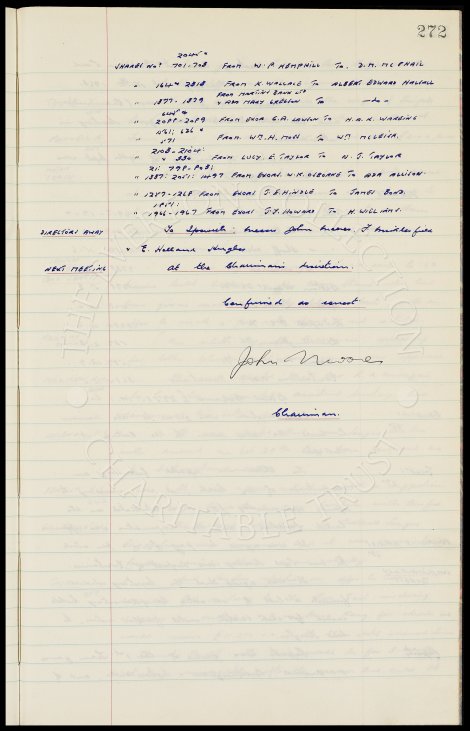 272
2045
SHARES Nos 701-708 FROM W.P. HEMPHILL TO D.M. MCPHAIL
" 164 & 2818 FROM K. WALLACE TO ALBERT EDWARD HALSALL
FROM MARTINS BANK LTD
" 1877-1879 & ADA MARY TO -do-
" 2088-2089 FROM EXOR G.A. LAWSON TO H.A.K. WAREING
1561; 626 &
" 171 FROM WM. H. MOSS TO WM MCLEISH.
" & 330 FROM LUCY. E. TAYLOR TO N. J. TAYLOR
211 798-
" 1887: 2051: 1497 FROM EXORS W.K. OSBORNE TO ADA ALLISON.
" 1257-1268 FROM EXORS J.E. HINDLE TO JAMES BOND.
" 1966-1967 FROM EXORS J.F. HOWARD TO H. WILLIAMS.
DIRECTORS AWAY To Ipswich: Messrs John Moores, F. Micklesfield
& E. Holland Hughes
NEXT MEETING At the Chairman's discretion.
Confirmed as correct
John Moores
Chairman.
THE EVERTON COLLECTION
CHARITABLE TRUST